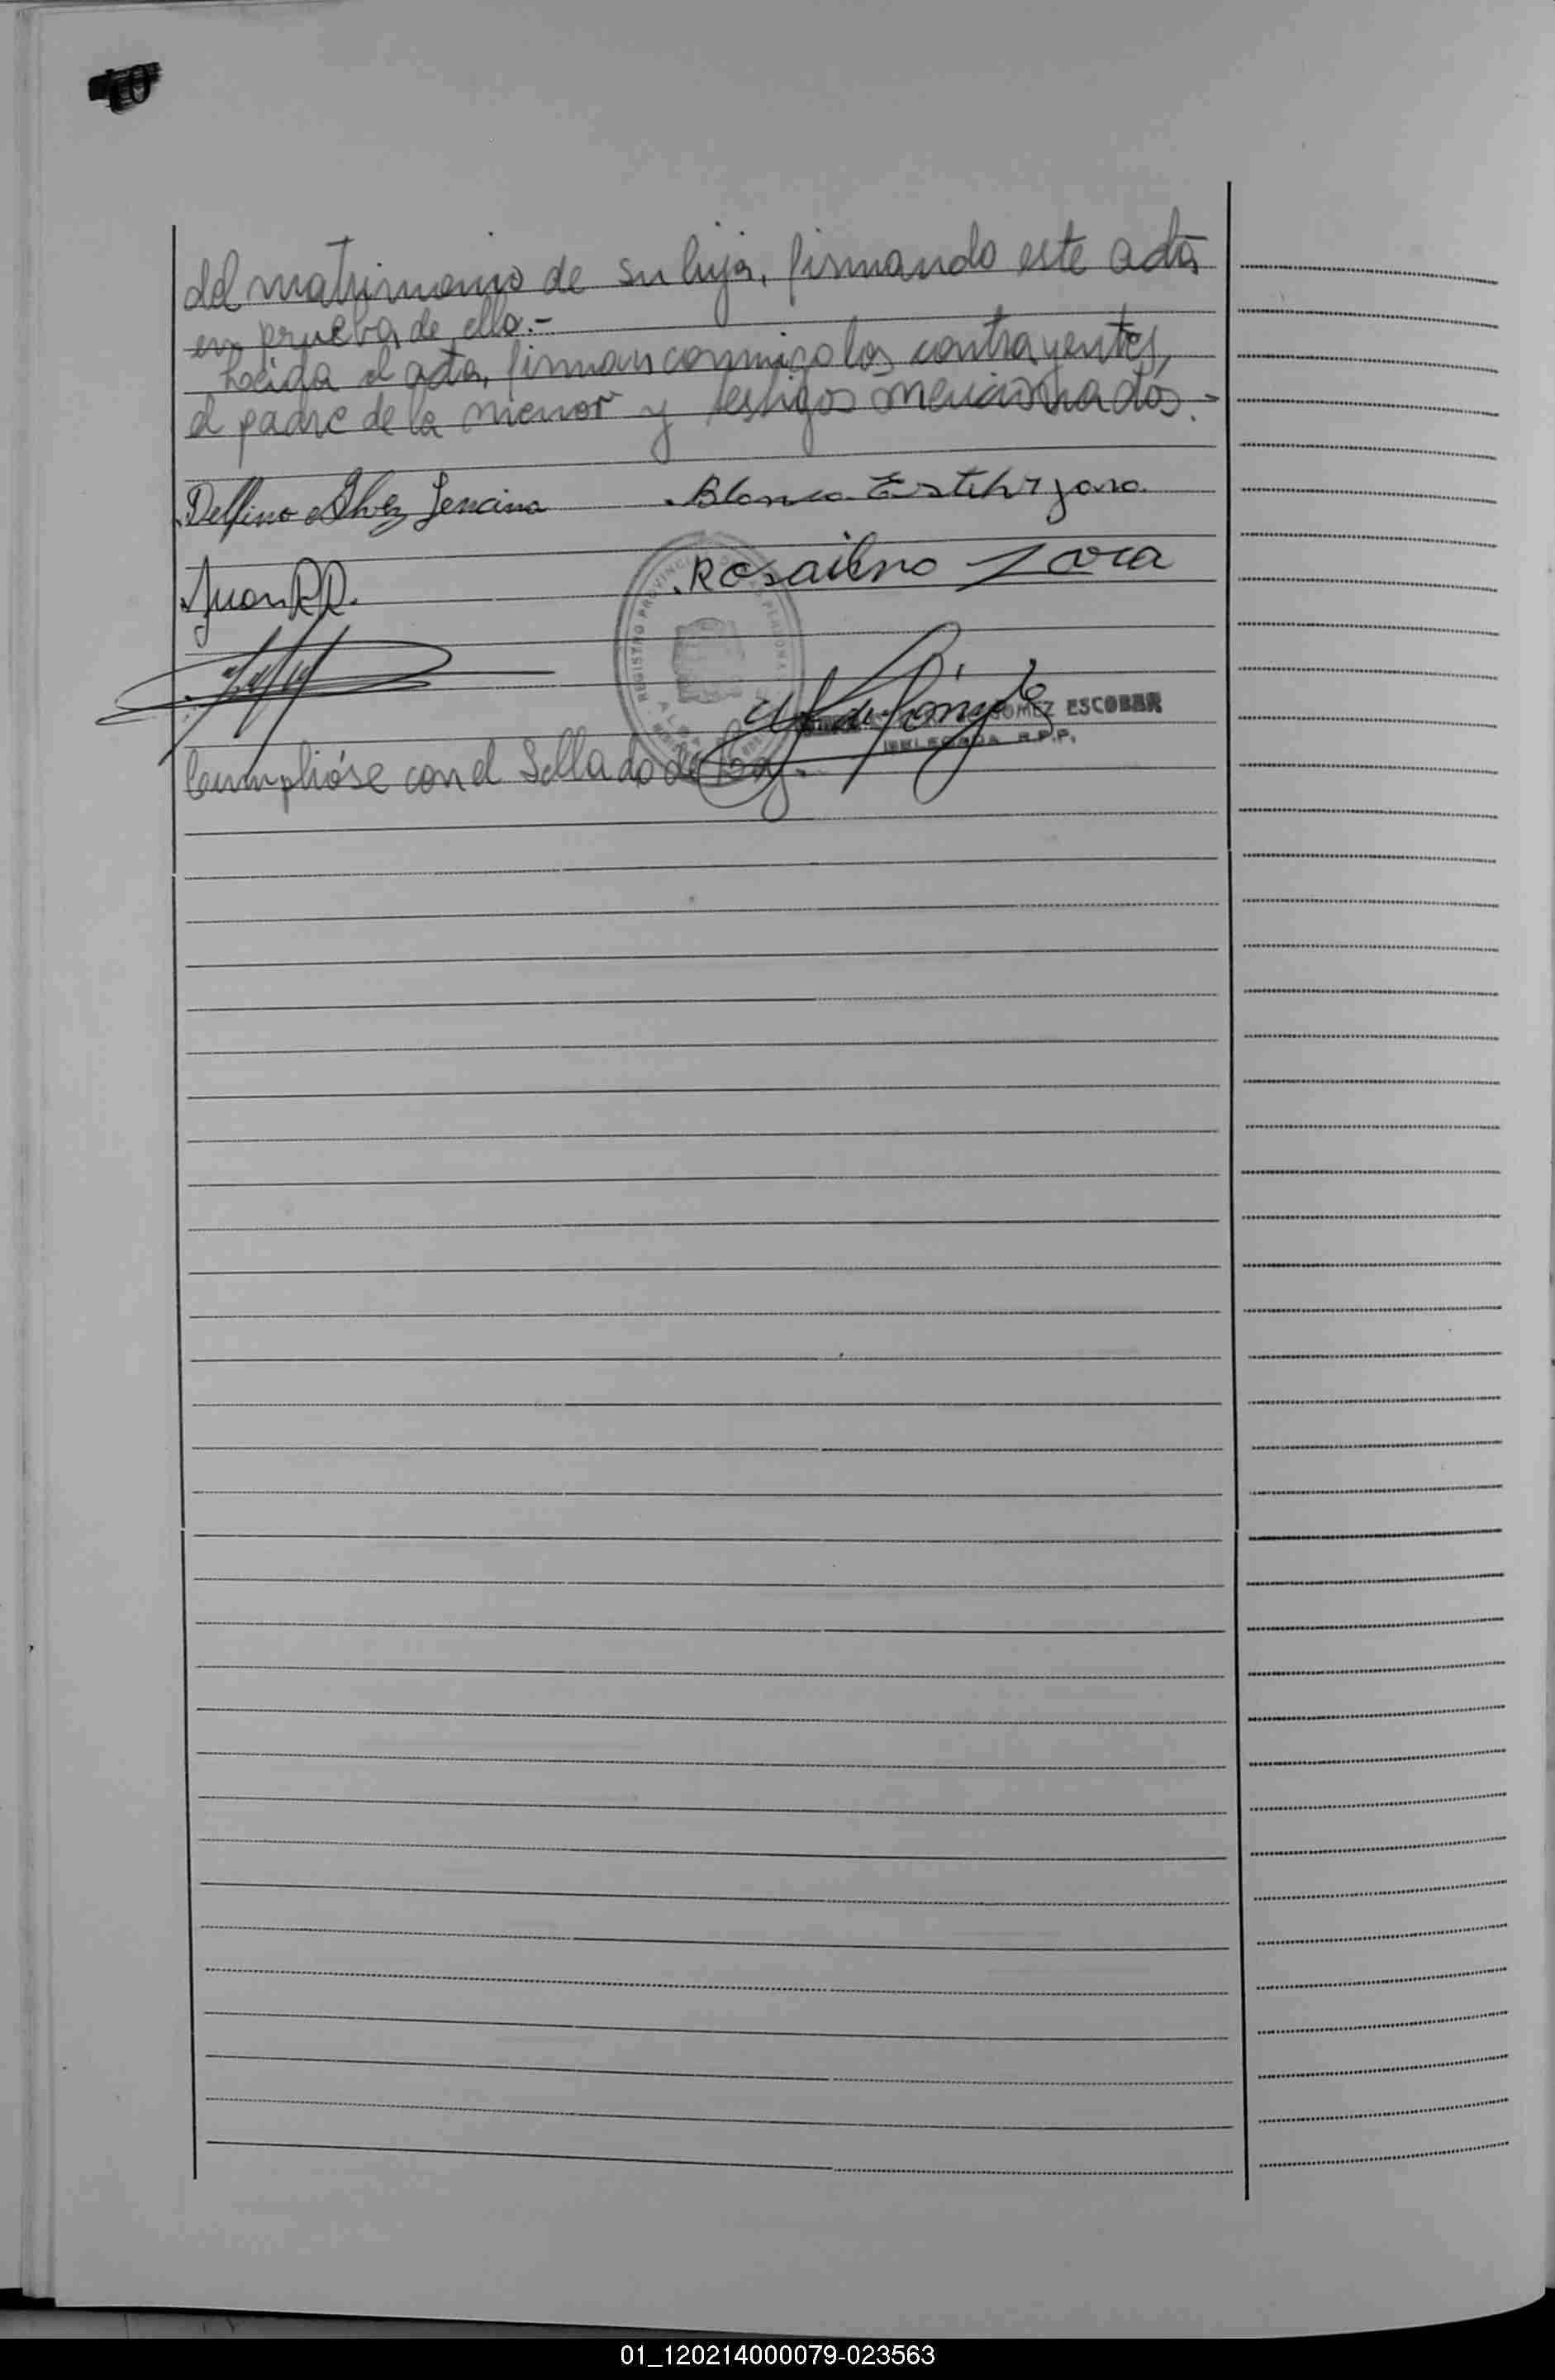 10
del matrimonio de su hija, firmando este acta
en prueba de ello.-
Leida el acta, firman conmigo los contrayentes,
el padre de la menor y testigos mencionados.-
Delfino
Juan R.D.
Rosalino Zara
REGISTRO PROVINCIAL PERSONA
GOMEZ ESCOBAR
DELEGADA R.P.P.
Cumplióse con el Sellado de Ley.-
01_120214000079-023563